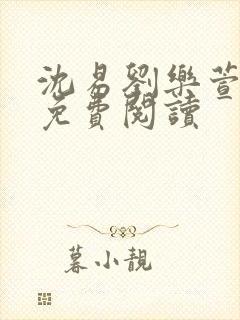 沈易劉樂萱
免費閱讀
暮小靚